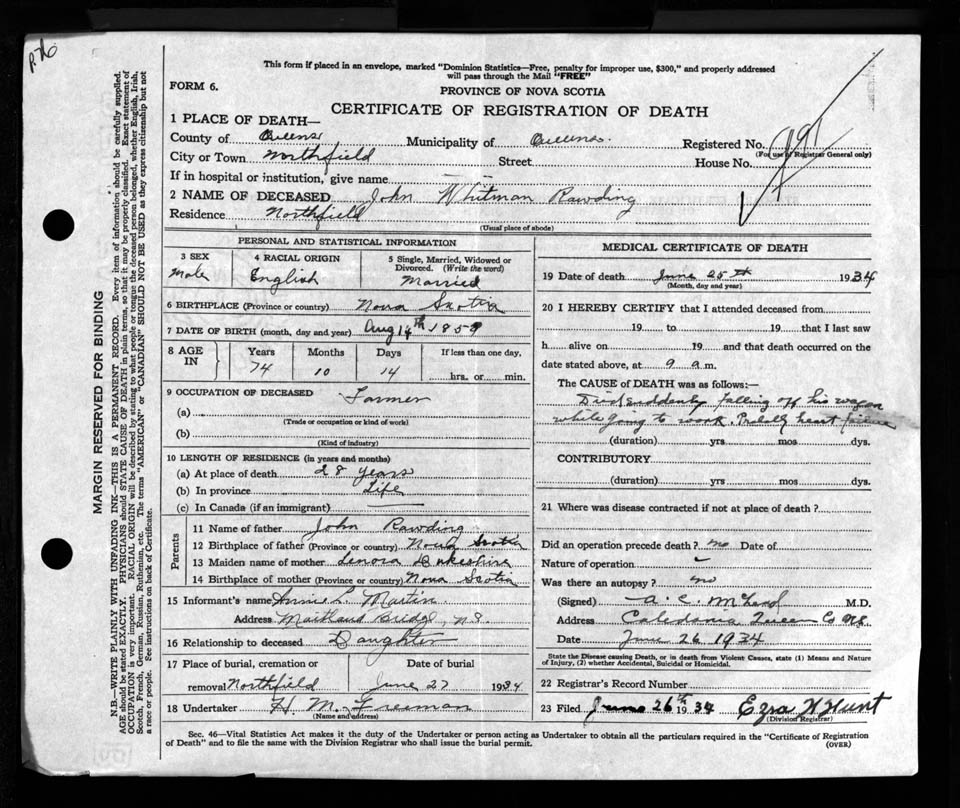 P.76
This form if placed in an envelope, marked "Dominion Statistics—Free, penalty for improper use, $300," and properly addressed
will pass through the Mail "FREE"
FORM 6.
PROVINCE OF NOVA SCOTIA
CERTIFICATE OF REGISTRATION OF DEATH
1 PLACE OF DEATH—
County of Queens Municipality of Queens. Registered No.
(For use of Registrar General only)
City or Town Northfield Street House No.
If in hospital or institution, give name
2 NAME OF DECEASED John Whitman Rawding
Residence Northfield
(Usual place of abode)
MARGIN RESERVED FOR BINDING
N.B.—WRITE PLAINLY WITH UNFADING INK—THIS IS A PERMANENT RECORD. Every item of information should be carefully supplied.
AGE should be stated EXACTLY. PHYSICIANS should STATE CAUSE OF DEATH in plain terms, so that it may be properly classified. Exact statement of
OCCUPATION is very important. RACIAL ORIGIN will be described by stating to what people or tongue the deceased person belonged, whether English, Irish,
Scotch, French, German, Russian, Ruthenian, etc. The terms "AMERICAN" or "CANADIAN" SHOULD NOT BE USED as they express citizenship but not
a race or people. See instructions on back of Certificate.
PERSONAL AND STATISTICAL INFORMATION
3 SEX
Male
4 RACIAL ORIGIN
English
5 Single, Married, Widowed or
Divorced. (Write the word)
Married
6 BIRTHPLACE (Province or country) Nova Scotia
7 DATE OF BIRTH (month, day and year) Aug 14th 1859
8 AGE IN
Years Months Days If less than one day,
74 10 14 hrs. or min.
9 OCCUPATION OF DECEASED Farmer
(a)
(Trade or occupation or kind of work)
(b)
(Kind of industry)
10 LENGTH OF RESIDENCE (in years and months)
(a) At place of death 28 years
(b) In province Life
(c) In Canada (if an immigrant)
Parents
11 Name of father John Rawding
12 Birthplace of father (Province or country) Nova Scotia
13 Maiden name of mother Lenora
14 Birthplace of mother (Province or country) Nova Scotia
15 Informant's name Annie L. Martin
Address Maitland Bridge, N.S.
16 Relationship to deceased Daughter
17 Place of burial, cremation or Date of burial
removal Northfield June 27 1934
18 Undertaker H M. Freeman
(Name and address)
MEDICAL CERTIFICATE OF DEATH
19 Date of death June 25th 1934
(Month, day and year)
20 I HEREBY CERTIFY that I attended deceased from
19 to 19 that I last saw
h alive on 19 and that death occurred on the
date stated above, at 9 a.m.
The CAUSE of DEATH was as follows:—
Died suddenly falling off his wagon
while going to work. Probably heart failure
(duration) yrs. mos dys.
CONTRIBUTORY
(duration) yrs. mos. dys.
21 Where was disease contracted if not at place of death?
Did an operation precede death? no Date of
Nature of operation
Was there an autopsy? no
(Signed) A. C. M.D.
Address Caledonia Queens Co NS.
Date June 26 1934
State the Disease causing Death, or in death from Violent Causes, state (1) Means and Nature
of Injury, (2) whether Accidental, Suicidal or Homicidal.
22 Registrar's Record Number
23 Filed June 26th 1934 Ezra W Hunt
(Division Registrar)
Sec. 46—Vital Statistics Act makes it the duty of the Undertaker or person acting as Undertaker to obtain all the particulars required in the "Certificate of Registration
of Death" and to file the same with the Division Registrar who shall issue the burial permit.
(OVER)